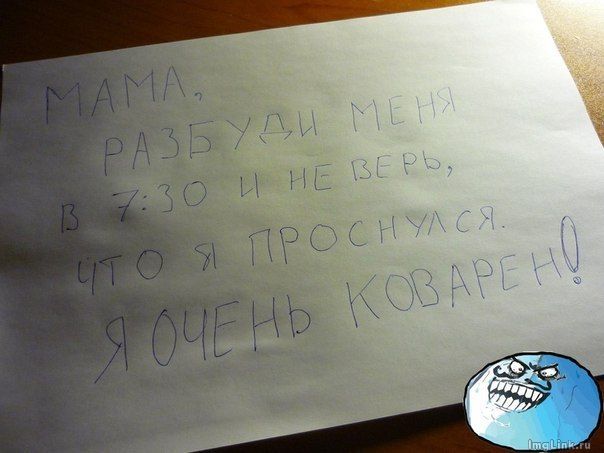 МАМА,
РАЗБУДИ МЕНЯ
В 7:30 И НЕ ВЕРЬ,
ЧТО Я ПРОСНУЛСЯ.
Я ОЧЕНЬ КОВАРЕН!
ImgLink.ru